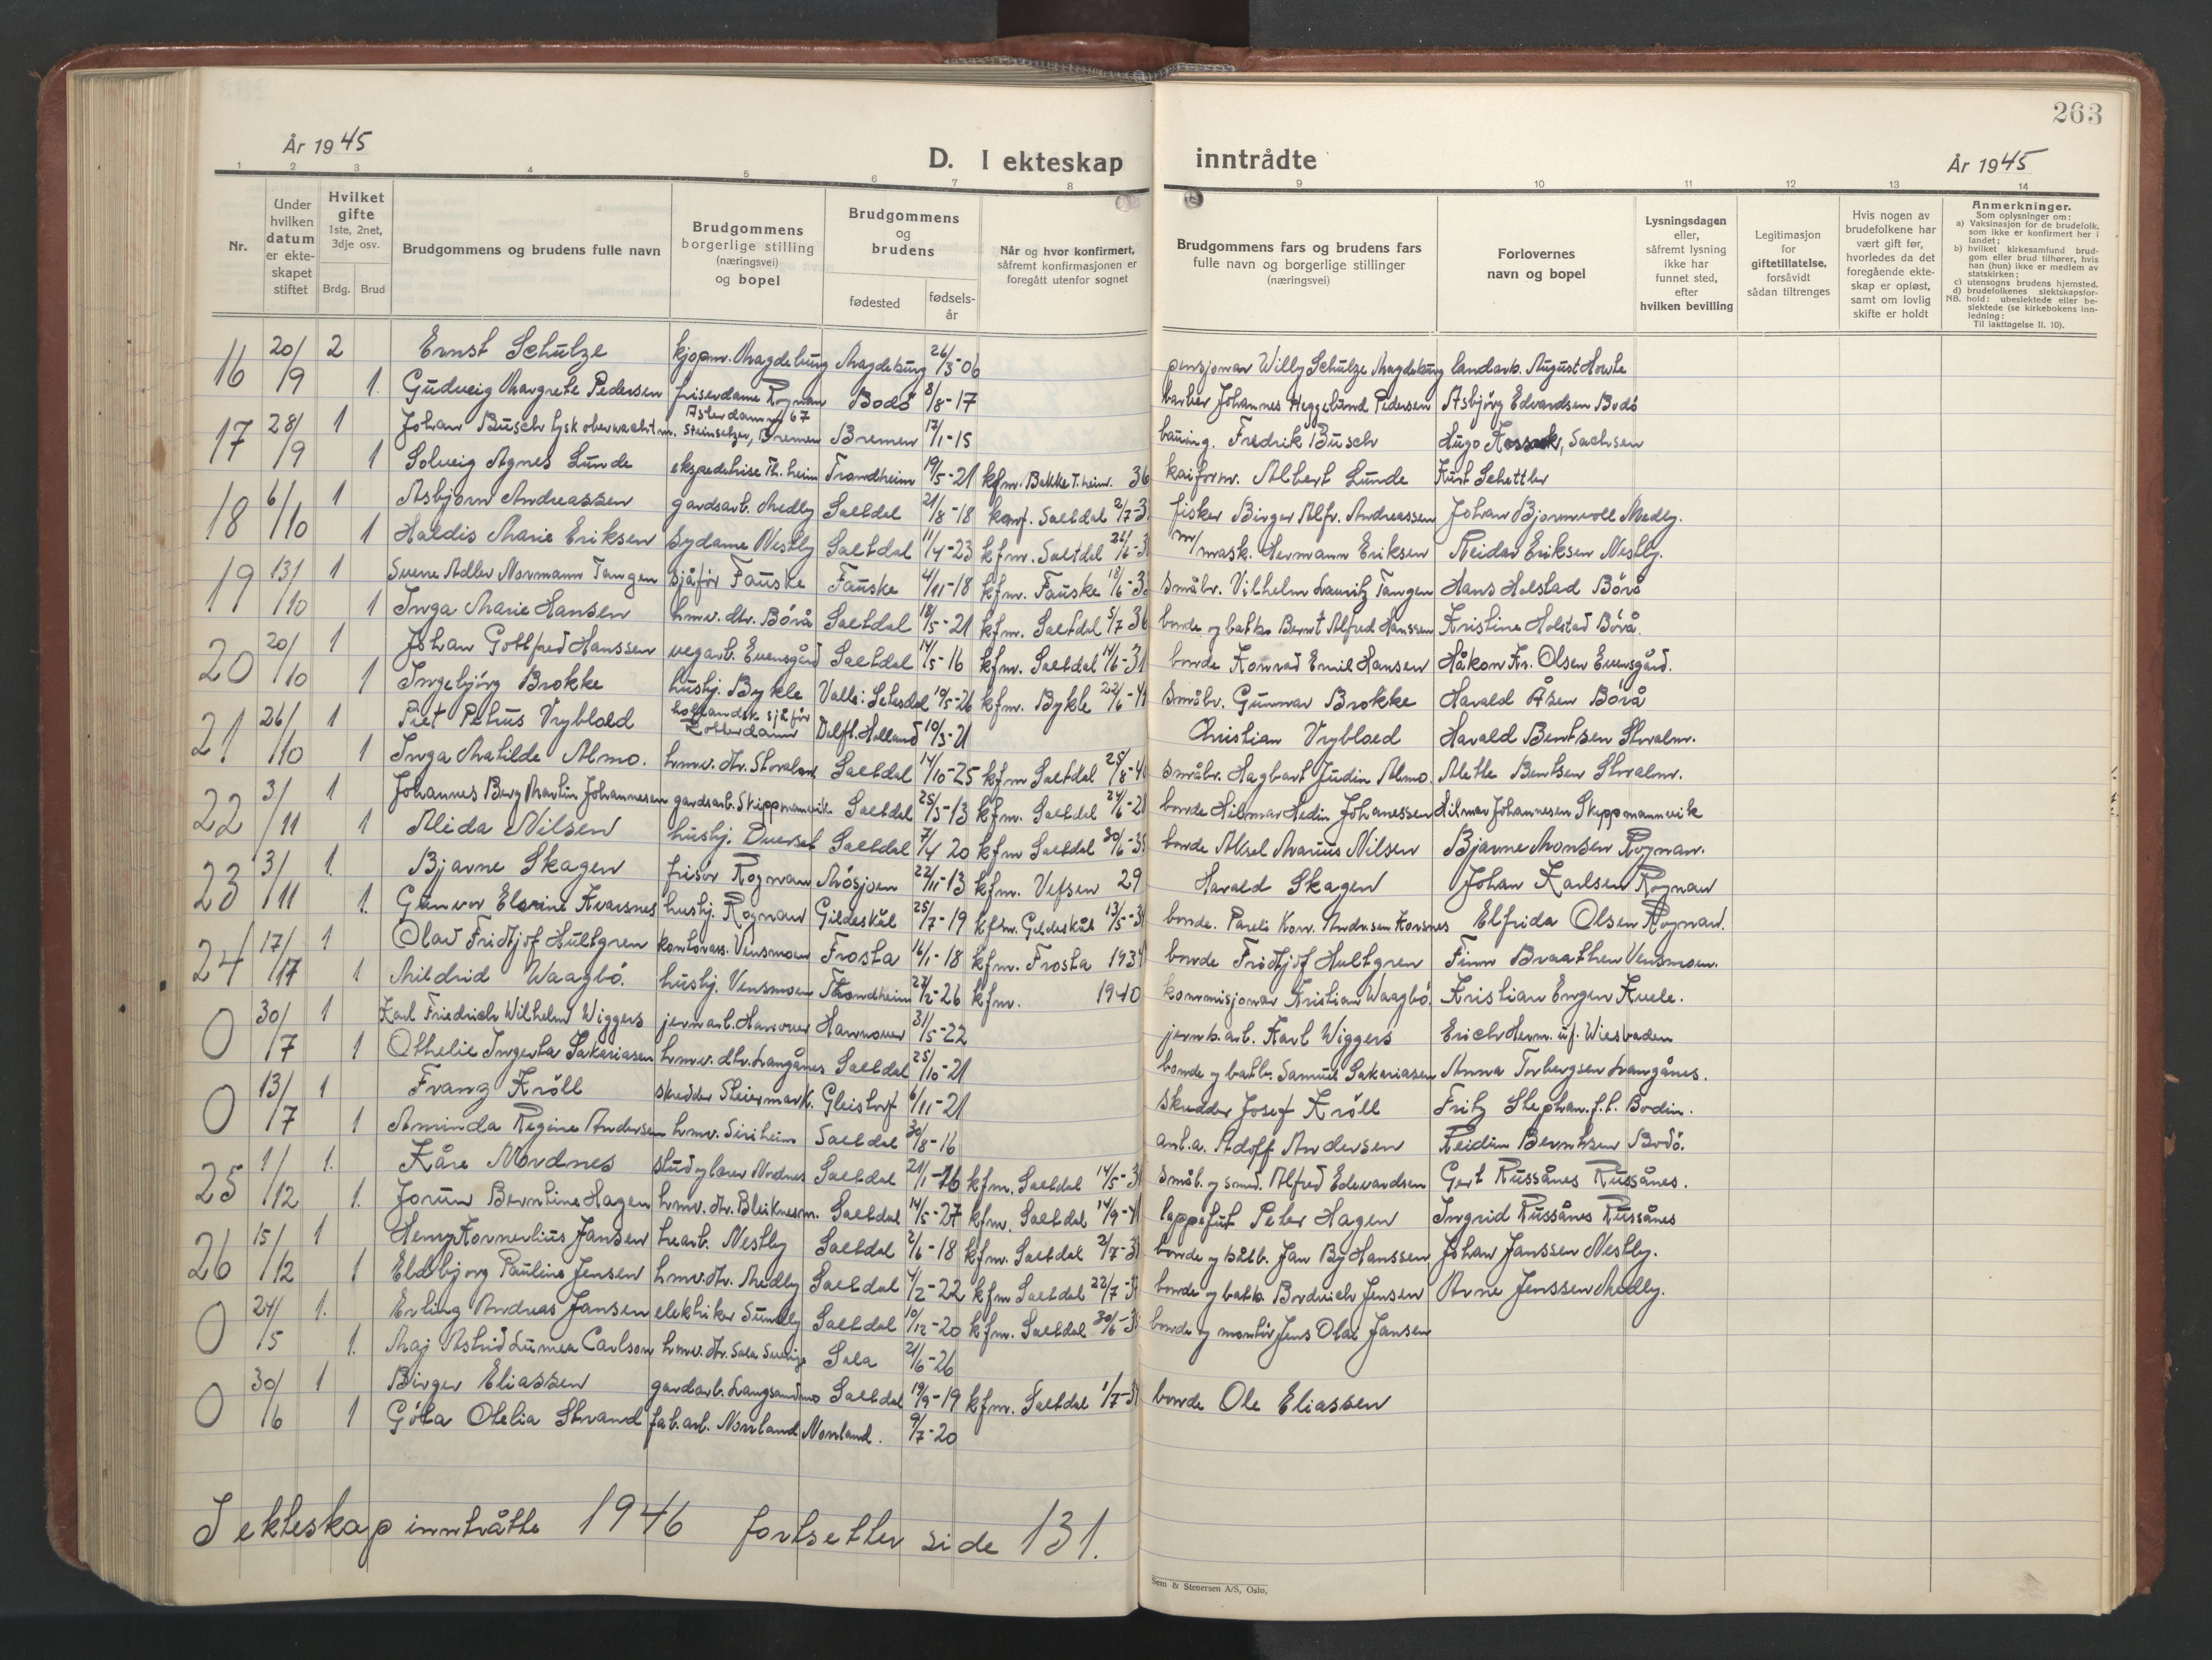 263
År 1945
D. I ekteskap inntrådte
År 1945
1 2 3 4 5 6 7 8 9 10 11 12 13 14
Nr.
Under hvilken datum er ekteskapet stiftet
Hvilket gifte 1ste, 2net, 3dje osv.
Brdg. Brud
Brudgommens og brudens fulle navn
Brudgommens borgerlige stilling (næringsvei) og bopel
Brudgommens og brudens
fødested
fødsels-år
Når og hvor konfirmert, såfremt konfirmasjonen er foregått utenfor sognet
Brudgommens fars og brudens fars fulle navn og borgerlige stillinger (næringsvei)
Forlovernes navn og bopel
Lysningsdagen eller, såfremt lysning ikke har funnet sted, efter hvilken bevilling
Legitimasjon for giftetillatelse, forsåvidt sådan tiltrenges
Hvis nogen av brudefolkene har vært gift før, hvorledes da det foregående ekteskap er opløst, samt om lovlig skifte er holdt
Anmerkninger.
Som oplysninger om:
a) Vaksinasjon for de brudefolk, som ikke er konfirmert her i landet;
b) hvilket kirkesamfund brudgom eller brud tilhører, hvis han (hun) ikke er medlem av statskirken;
c) utensogns brudens hjemsted.
d) brudefolkenes slektskapsforhold: ubeslektede eller beslektede (se kirkebokens innledning:
NB.
Til iakttagelse II. 10).
16 20/9 2 Ernst Schulze kjøpm. Magdeburg Magdeburg 26/3-06 pensjonær Willy Schulze Magdeburg landarb. August
1. Gudveig Margrete Pedersen friserdame Rognan Bodø 8/8-17 barber Johannes Heggelund Pedersen Asbjørg Edvardsen Bodø
17 28/9 1 Johan Busch tysk oberwachtm. Steinsetzer, Bremen 67 Bremen 17/1-15 Fredrik Busch Hugo Sachsen
1 Solveig Agnes Lunde ekspeditrise Th.heim Trondheim 19/5-21 kfm. Bakke T.heim. 36 kaiform. Albert Lunde Kurt Schettler
18 6/10 1 Asbjørn Andreassen gardsarb. Medby Saltdal 21/8-18 konf. Saltdal 2/7-3 fisker Birger Alfr. Andreassen Johan Bjørnvoll Medby.
1 Haldis Marie Eriksen Sydame Nestby Saltdal 11/4-23 kfm. Saltdal mask. Hermann Eriksen Reidar Eriksen Nestby.
19 13/10 1 Sverre Adler Normann Tangen sjåfør Fauske Fauske 4/11-18 kfm. Fauske 18/6-3 småbr. Vilhelm Lauritz Tangen Hans Holstad Børå
1 Inga Marie Hansen hmv. dtr. Børå Saltdal 18/5-21 kfm. Saltdal 5/7 36 bonde og båtb. Bernt Alfred Hanssen Kristine Holstad Børå.
20 20/10 1 Johan Gottfred Hanssen vegarb. Evensgård Saltdal 14/5-16 kfm. Saltdal 14/6-31 bonde Konrad Emil Hansen Håkon Kr. Olsen Evensgård.
1 Ingebjørg Brokke hushj. Bykle Valle i Setesdal 19/5-26 kfm. Bykle 22/6-4 Småbr. Gunnar Brokke Harald Åsen Børå
21 26/10 1 Piet Petrus Vrybloed hollandsk sjåfør Rotterdam Delft. Holland 10/3-21 Christian Vrybloed Harald Bentsen Storalm.
1 Inga Matilde Almo. hmv. dtr. Storalm Saltdal 14/10-25 kfm Saltdal 25/8-4 småbr. Hagbart Judin Almo. Mette Bentsen Storalm.
22 3/11 1 Johannes Berg Martin Johannesen gardsarb. Skippmannvik Saltdal 25/3-13 kfm. Saltdal 24/6-28 bonde Hilmar Hedin Johanessen Hilmar Johannesen Skippmannvik
1 Alida Nilsen hushj. Dverset Saltdal 7/4 20 kfm Saltdal 30/6-3 bonde Aksel Marius Nilsen Bjarne Monsen Rognan.
23 3/11 1. Bjarne Skagen frisør Rognan Mosjøen 22/11-13 kfm. Vefsen 29 Harald Skagen Johan Karlsen Rognan
1. Gunvor Elerine Kvarsnes hushj. Rognan Gildeskål 25/7-19 kfm. Gildeskål 13/5-3 bonde. Pareli Kon. Andr.sen Elfrida Olsen Rognan.
24 17/17 1 Olav Fridtjof Hultgren kontorass. Vensmoen Frosta 16/1-18 kfm. Frosta 193 bonde Fridtjof Hultgren Finn Braathen Vensmoen.
1 Mildrid Waagbø. hushj. Vensmoen Trondheim 27/2-26 kfm. 1940 kommisjonær Kristian Waagbø. Kristian Engen Kvele.
0 30/7 1 Karl Friedrich Wilhelm Wiggers jernarb. Hanover Hannover 31/5-22 jernb.arb. Karl Wiggers Erich Herm. uf. Wiesbaden
1 Othelie Ingerta Sakariasen hmv. dtr. Langånes Saltdal 25/10-21 bonde og båtb. Samuel Sakariasen Anna Torbergsen Langånes.
0 13/7 1 Franz Kröll skredder Steiermark. Gleisdorf 6/11-21 skredder Josef Kröll Fritz Stephan. f.t. Bodin.
1 Aminda Regine Andersen hmv. Siriheim Saltdal 30/8-16 anl.a. Adolf Andersen Reidun Berntsen Bodø.
25 1/12 1. Kåre Nordnes stud og lærer Nordnes Saltdal 21/1-16 kfm. Saltdal 14/5-3 småb. og smed. Alfred Edvardsen Gert Russånes Russånes.
1. Jorun Berntine Hagen hmv. dtr. Bleiknesm. Saltdal 14/5-27 kfm. Saltdal 14/9-4 lappefut Peter Hagen Ingrid Russånes Russånes
26 15/12 1 Henry Kornerlius Jansen Nestby Saltdal 2/6-18 kfm. Saltdal 2/7-3 bonde og båtb. Jan By Hanssen Johan Janssen Nestby.
1 Eldbjørg Pauline Jensen hmv. dtr. Medby Saltdal 4/2-22 kfm Saltdal 22/7-3 bonde og båtb. Brodrich Jensen Arne Jenssen Medby.
0 24/5 1. Erling Andreas Jansen elektriker Sundby Saltdal 10/12-20 kfm. Saltdal 30/6-3 bonde og montør Jens Olai Jansen
1. Maj Astrid Lumea Carlson hmv. dtr. Sala Sverige Sala 21/6-26
0 30/6 1 Birger Eliassen gardarb. Langsandmo Saltdal 19/9-19 kfm. Saltdal 1/7-3 bonde Ole Eliassen
1 Göta Otelia Strand fab.arb. Norrland Norrland. 9/7-20
I ekteskap inntrådte 1946 fortsetter side 131.
Sem & Stenersen A/S, Oslo,